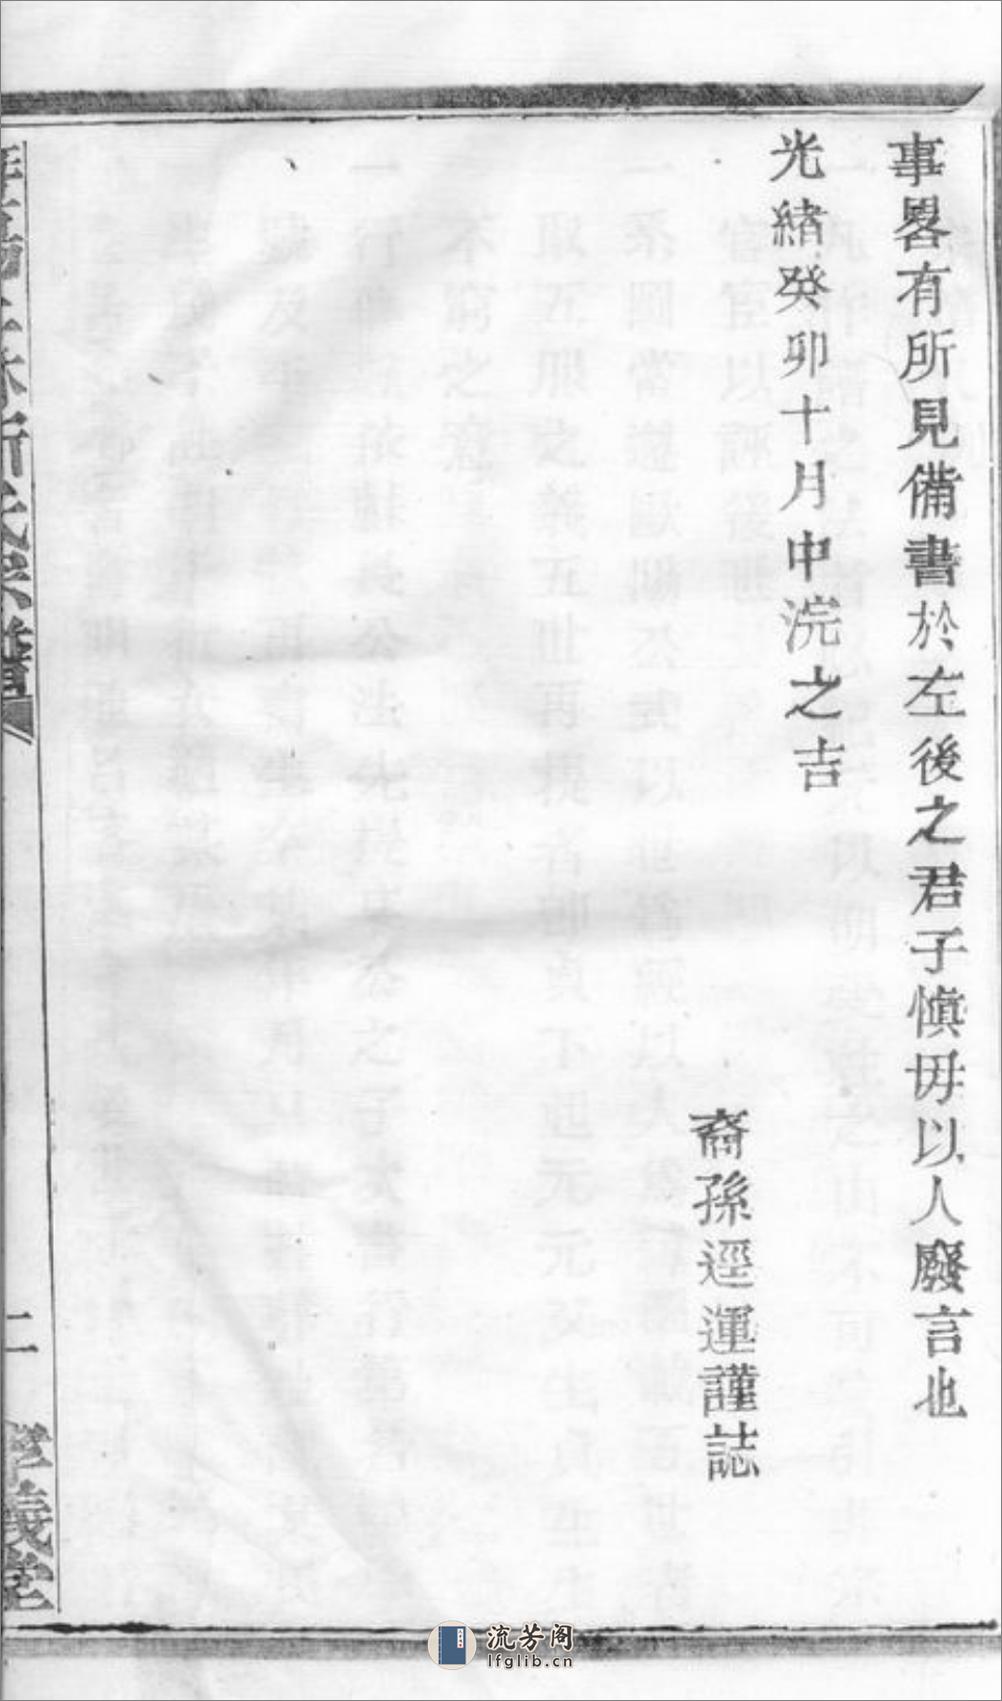 事畧有所見備書於左後之君子慎毋以人廢言也
光緒癸卯十月中浣之吉
裔孫逕運謹誌
氏宗譜
二
義堂
流芳阁
lfglib.cn